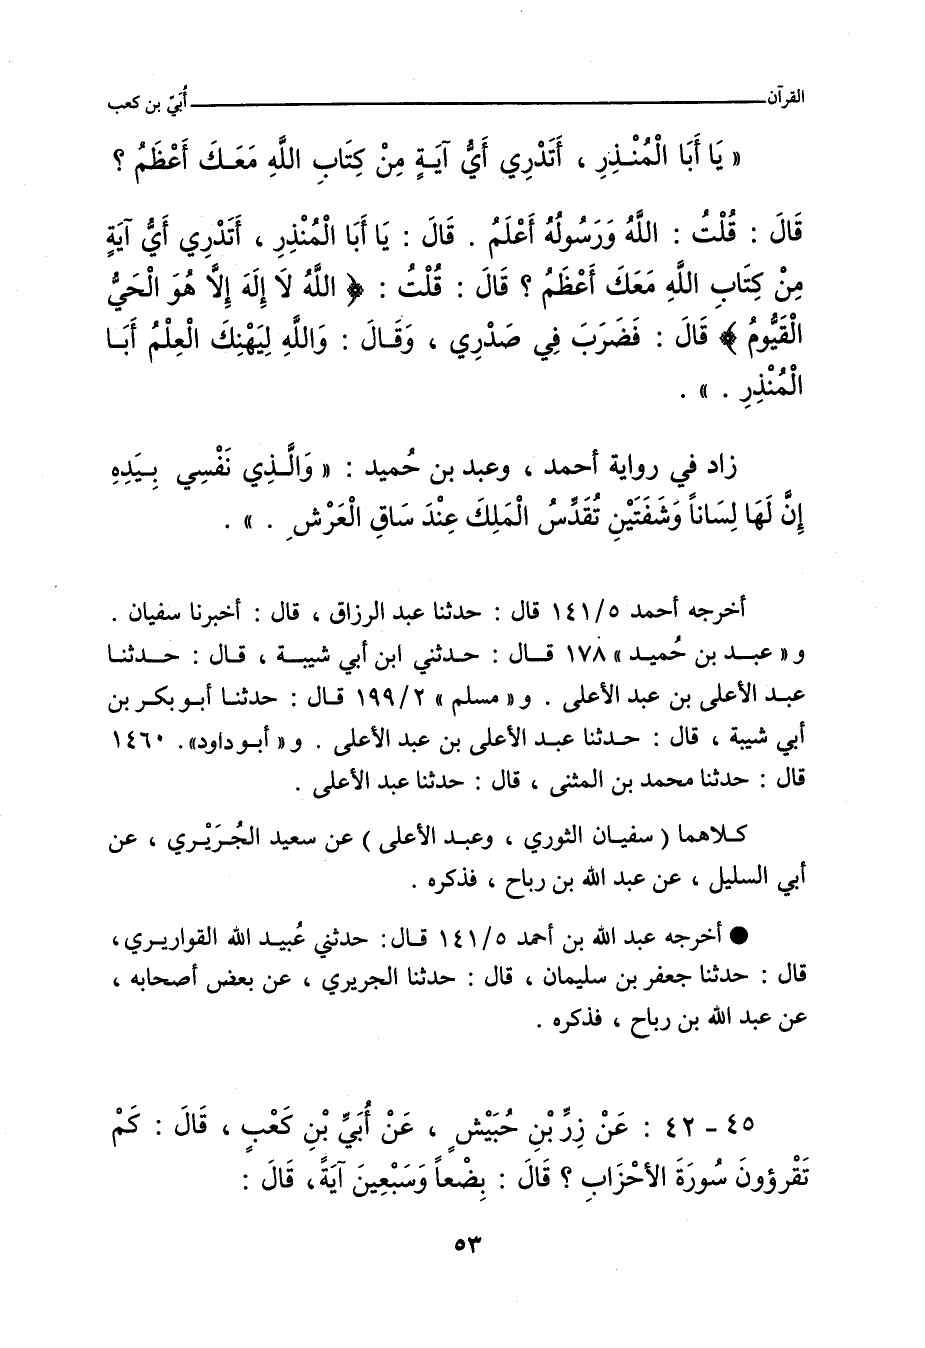 القرآن ــــــــــ أُبَيّ بن كعب
« يَا أَبَا الْمُنْذِرِ ، أَتَدْرِي أَيُّ آيَةٍ مِنْ كِتَابِ اللَّهِ مَعَكَ أَعْظَمُ ؟
قَالَ : قُلْتُ : اللَّهُ وَرَسُولُهُ أَعْلَمُ . قَالَ : يَا أَبَا الْمُنْذِرِ ، أَتَدْرِي أَيُّ آيَةٍ
مِنْ كِتَابِ اللَّهِ مَعَكَ أَعْظَمُ ؟ قَالَ : قُلْتُ : ﴿ اللَّهُ لَا إِلَهَ إِلَّا هُوَ الْحَيُّ
الْقَيُّومُ ﴾ قَالَ : فَضَرَبَ فِي صَدْرِي ، وَقَالَ : وَاللَّهِ لِيَهْنِكَ الْعِلْمُ أَبَا
الْمُنْذِرِ . » .
زاد في رواية أحمد ، وعبد بن حُميد : « وَالَّذِي نَفْسِي بِيَدِهِ
إِنَّ لَهَا لِسَاناً وَشَفَتَيْنِ تُقَدِّسُ الْمَلِكَ عِنْدَ سَاقِ الْعَرْشِ . » .
أخرجه أحمد ١٤١/٥ قال : حدثنا عبد الرزاق ، قال : أخبرنا سفيان .
و« عبد بن حُميد » ١٧٨ قال : حدثني ابن أبي شيبة ، قال : حدثنا
عبد الأعلى بن عبد الأعلى . و« مسلم » ١٩٩/٢ قال : حدثنا أبو بكر بن
أبي شيبة ، قال : حدثنا عبد الأعلى بن عبد الأعلى . و« أبو داود». ١٤٦٠
قال : حدثنا محمد بن المثنى ، قال : حدثنا عبد الأعلى .
كلاهما ( سفيان الثوري ، وعبد الأعلى ) عن سعيد الجُرَيْري ، عن
أبي السليل ، عن عبد الله بن رباح ، فذكره .
● أخرجه عبد الله بن أحمد ١٤١/٥ قال: حدثني عُبيد الله القواريري،
قال : حدثنا جعفر بن سليمان ، قال : حدثنا الجريري ، عن بعض أصحابه ،
عن عبد الله بن رباح ، فذكره .
٤٥ - ٤٢ : عَنْ زِرِّ بْنِ حُبَيْشٍ ، عَنْ أُبَيِّ بْنِ كَعْبٍ ، قَالَ : كَمْ
تَقْرَؤونَ سُورَةَ الأَحْزَابِ ؟ قَالَ : بِضْعاً وَسَبْعِينَ آيَةً، قَالَ :
٥٣